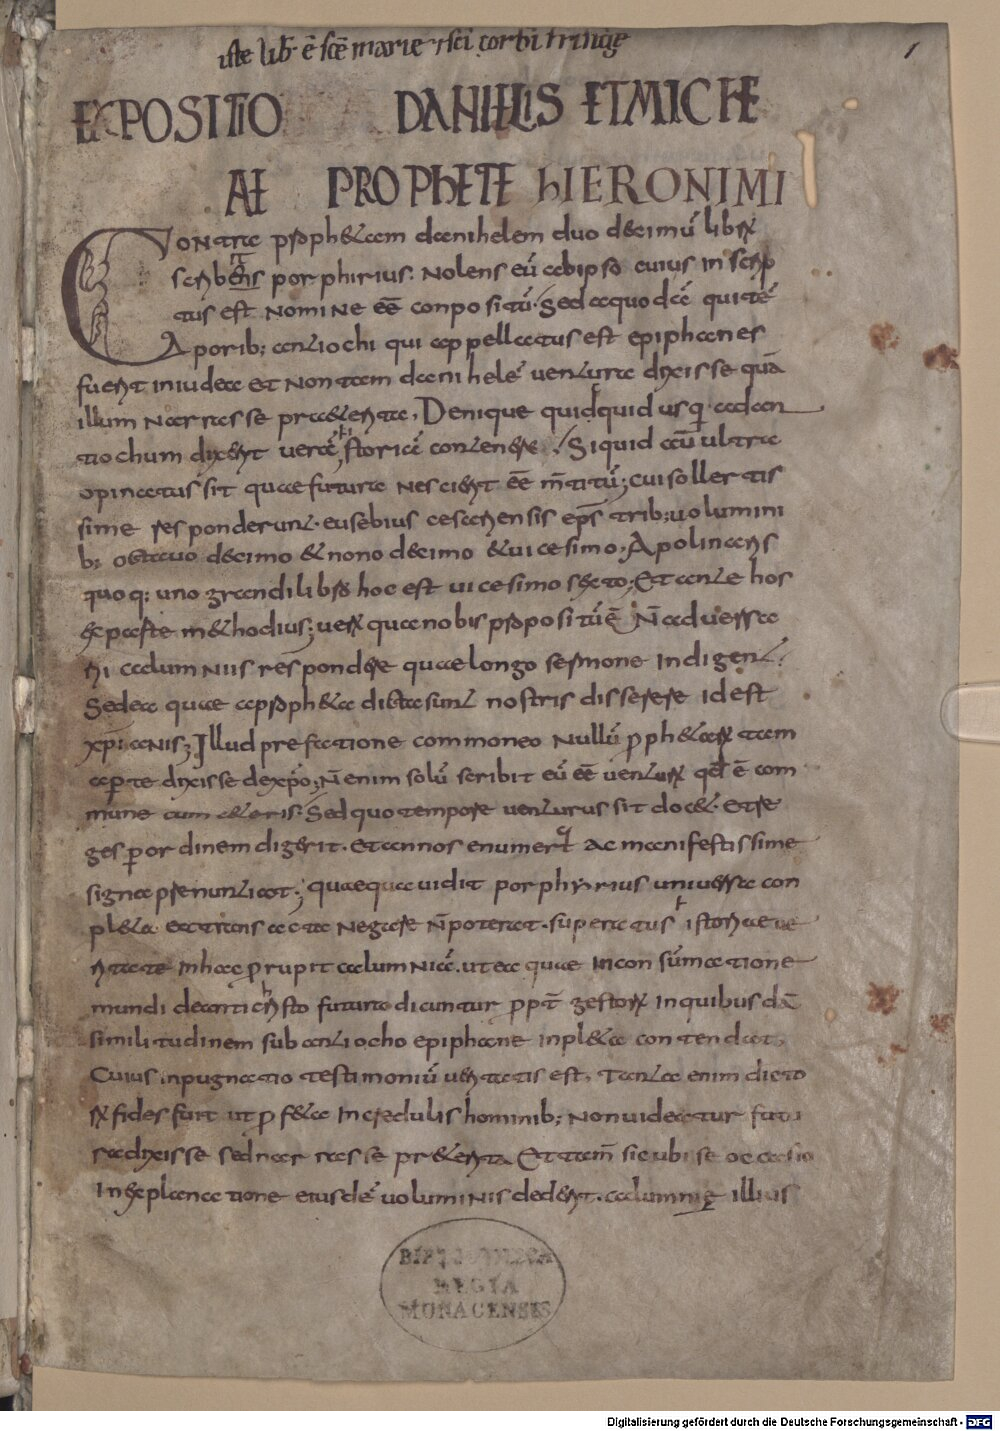 iste lib̄ ē scē marie ⁊ sc̄i corbi frisīge
1
EXPOSITIO DANIHELIS ET MICHE
AE PROPHETE hIERONIMI
CONtra prophetam danihelem duo decimū libꝝ
scribens porphirius. Nolens eū abipso cuius in scrip
tus est NomiNe eē conpositū. Sed aquodā qui tē
Aporib; antiochi qui appellatus est epiphanes
fuerit iniudea et Non tam danihelē ventura dixisse quā
illum Narrasse praeterita. Denique quidquid usq; adan
tiochum dixerit verā storiā continere. Siquid autē ultra
opinatus sit quae futura Nescierit eē m̄titū; cui soller tis
sime responderunt. eusebius cesariensis ep̄s trib; volumini
b; octavo decimo & nono decimo & vicesimo. Apolinaris
quoq; uno grandi libro hoc est vicesimo sexto; Et ante hos
ex parte m&hodius; veꝝ quia nobis propositū ē N̄ adversa
rii calumNiis respondere quae longo sermone indigent.
Sed ea quae aproph&a dicta sunt nostris disserere id est
xp̄ianis; Illud prefatione commoneo Nullū ꝓph&aꝝ tam
aperte dixisse de xp̄o; N̄ enim solū scribit eū eē venturū qd̄ ē com
mune cum c&eris. Sed quo tempore venturus sit doc&. Et re
ges ꝑ ordinem digerit. et annos enumerat Ac manifestissime
signa prenuntiat; quae quia vidit porphyrius universa con
pl&a et transacta Negare N̄ poterat. superatus istoriae ve
ritate in hac ꝓrupit calumNiā. ut ea quae in consūmatione
mundi de antichristo futura dicuntur ꝓpt̄ gestoꝝ in quibusdā
similitudinem sub antiocho epiphane inpl&a contendat.
Cuius inpugnatio testimoniū veritatis est. Tanta enim dicto
ꝝ fides fuit ut ꝓph&a incredulis hominib; Non videatur futu
ra dixisse sed narrasse pr&erita. Et tam̄ sicubi se occasio
In explanatione eiusdē voluminis dederit. calumnię illius
BIBLIOTHECA
REGIA
MONACENSIS
Digitalisierung gefördert durch die Deutsche Forschungsgemeinschaft - DFG